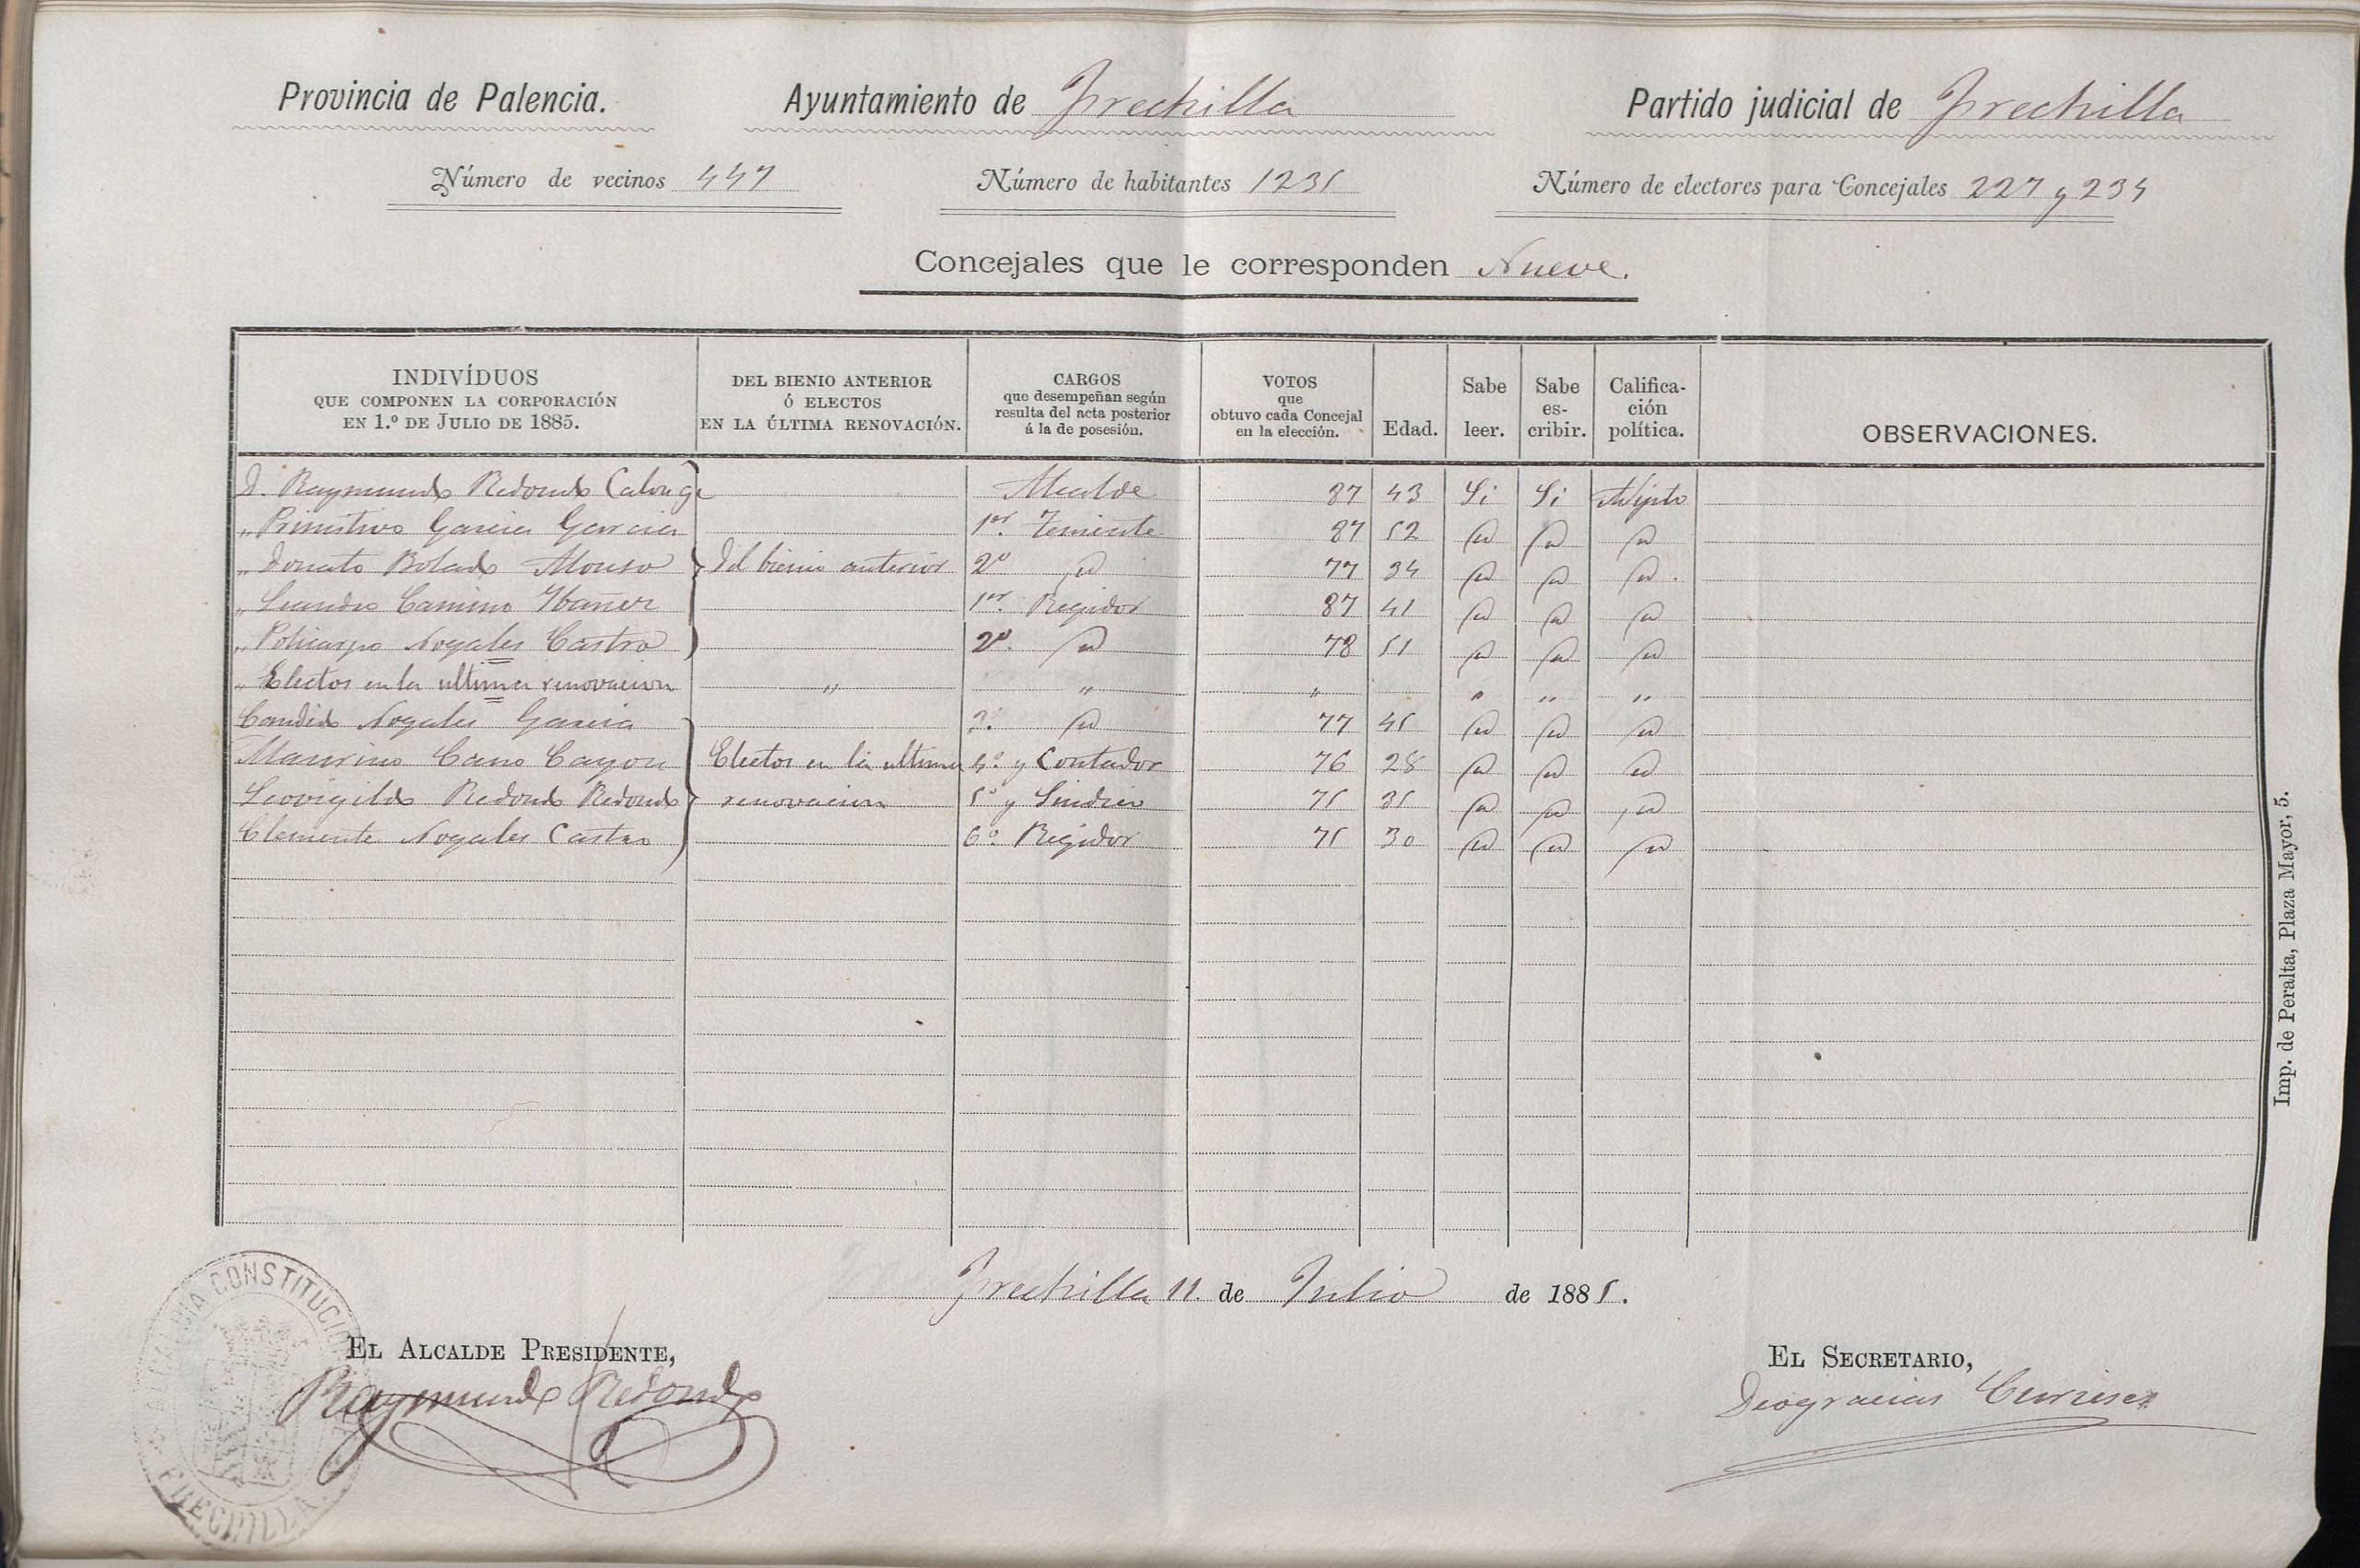 Provincia de Palencia. Ayuntamiento de Frechilla Partido judicial de Frechilla
Número de vecinos 447 Número de habitantes 1235 Número de electores para Concejales 227 y 234
Concejales que le corresponden Nueve.
INDIVÍDUOS QUE COMPONEN LA CORPORACIÓN EN 1.º DE JULIO DE 1885. DEL BIENIO ANTERIOR Ó ELECTOS EN LA ÚLTIMA RENOVACIÓN. CARGOS que desempeñan según resulta del acta posterior á la de posesión. VOTOS que obtuvo cada Concejal en la elección. Edad. Sabe leer. Sabe es-cribir. Califica-ción política. OBSERVACIONES.
D. Raymundo Redondo Calonge Alcalde 87 43 Si Si Adipto
" Primitivo Garcia Garcia 1er. Teniente 87 52 id id id
" Donato Bolado Alonso Del bienio anterior 2º id 77 34 id id id.
" Leandro Camino Ybañez 1er. Regidor 87 41 id id id
" Policarpo Nogales Castro 2º. id 78 51 id id id
" Electos en la ultima renovacion " " " " " "
Candido Nogales Garcia 3. id 77 45 id id id
Maurino Cano Cayon Electos en la ultima 4º. y Contador 76 28 id id id
Leovigildo Redondo Redondo renovacion 5º y Sindico 75 35 id id id
Clemente Nogales Castro 6º. Regidor 75 30 id id id
Imp. de Peralta, Plaza Mayor, 5.
Frechilla 11 de Julio de 1885.
ALCALDIA CONSTITUCIONAL
FRECHILLA
EL ALCALDE PRESIDENTE, EL SECRETARIO,
Raymundo Redondo Deogracias